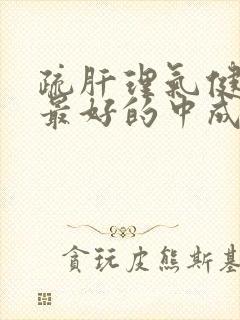 疏肝理氣健
最好的中成
貪玩皮熊斯基